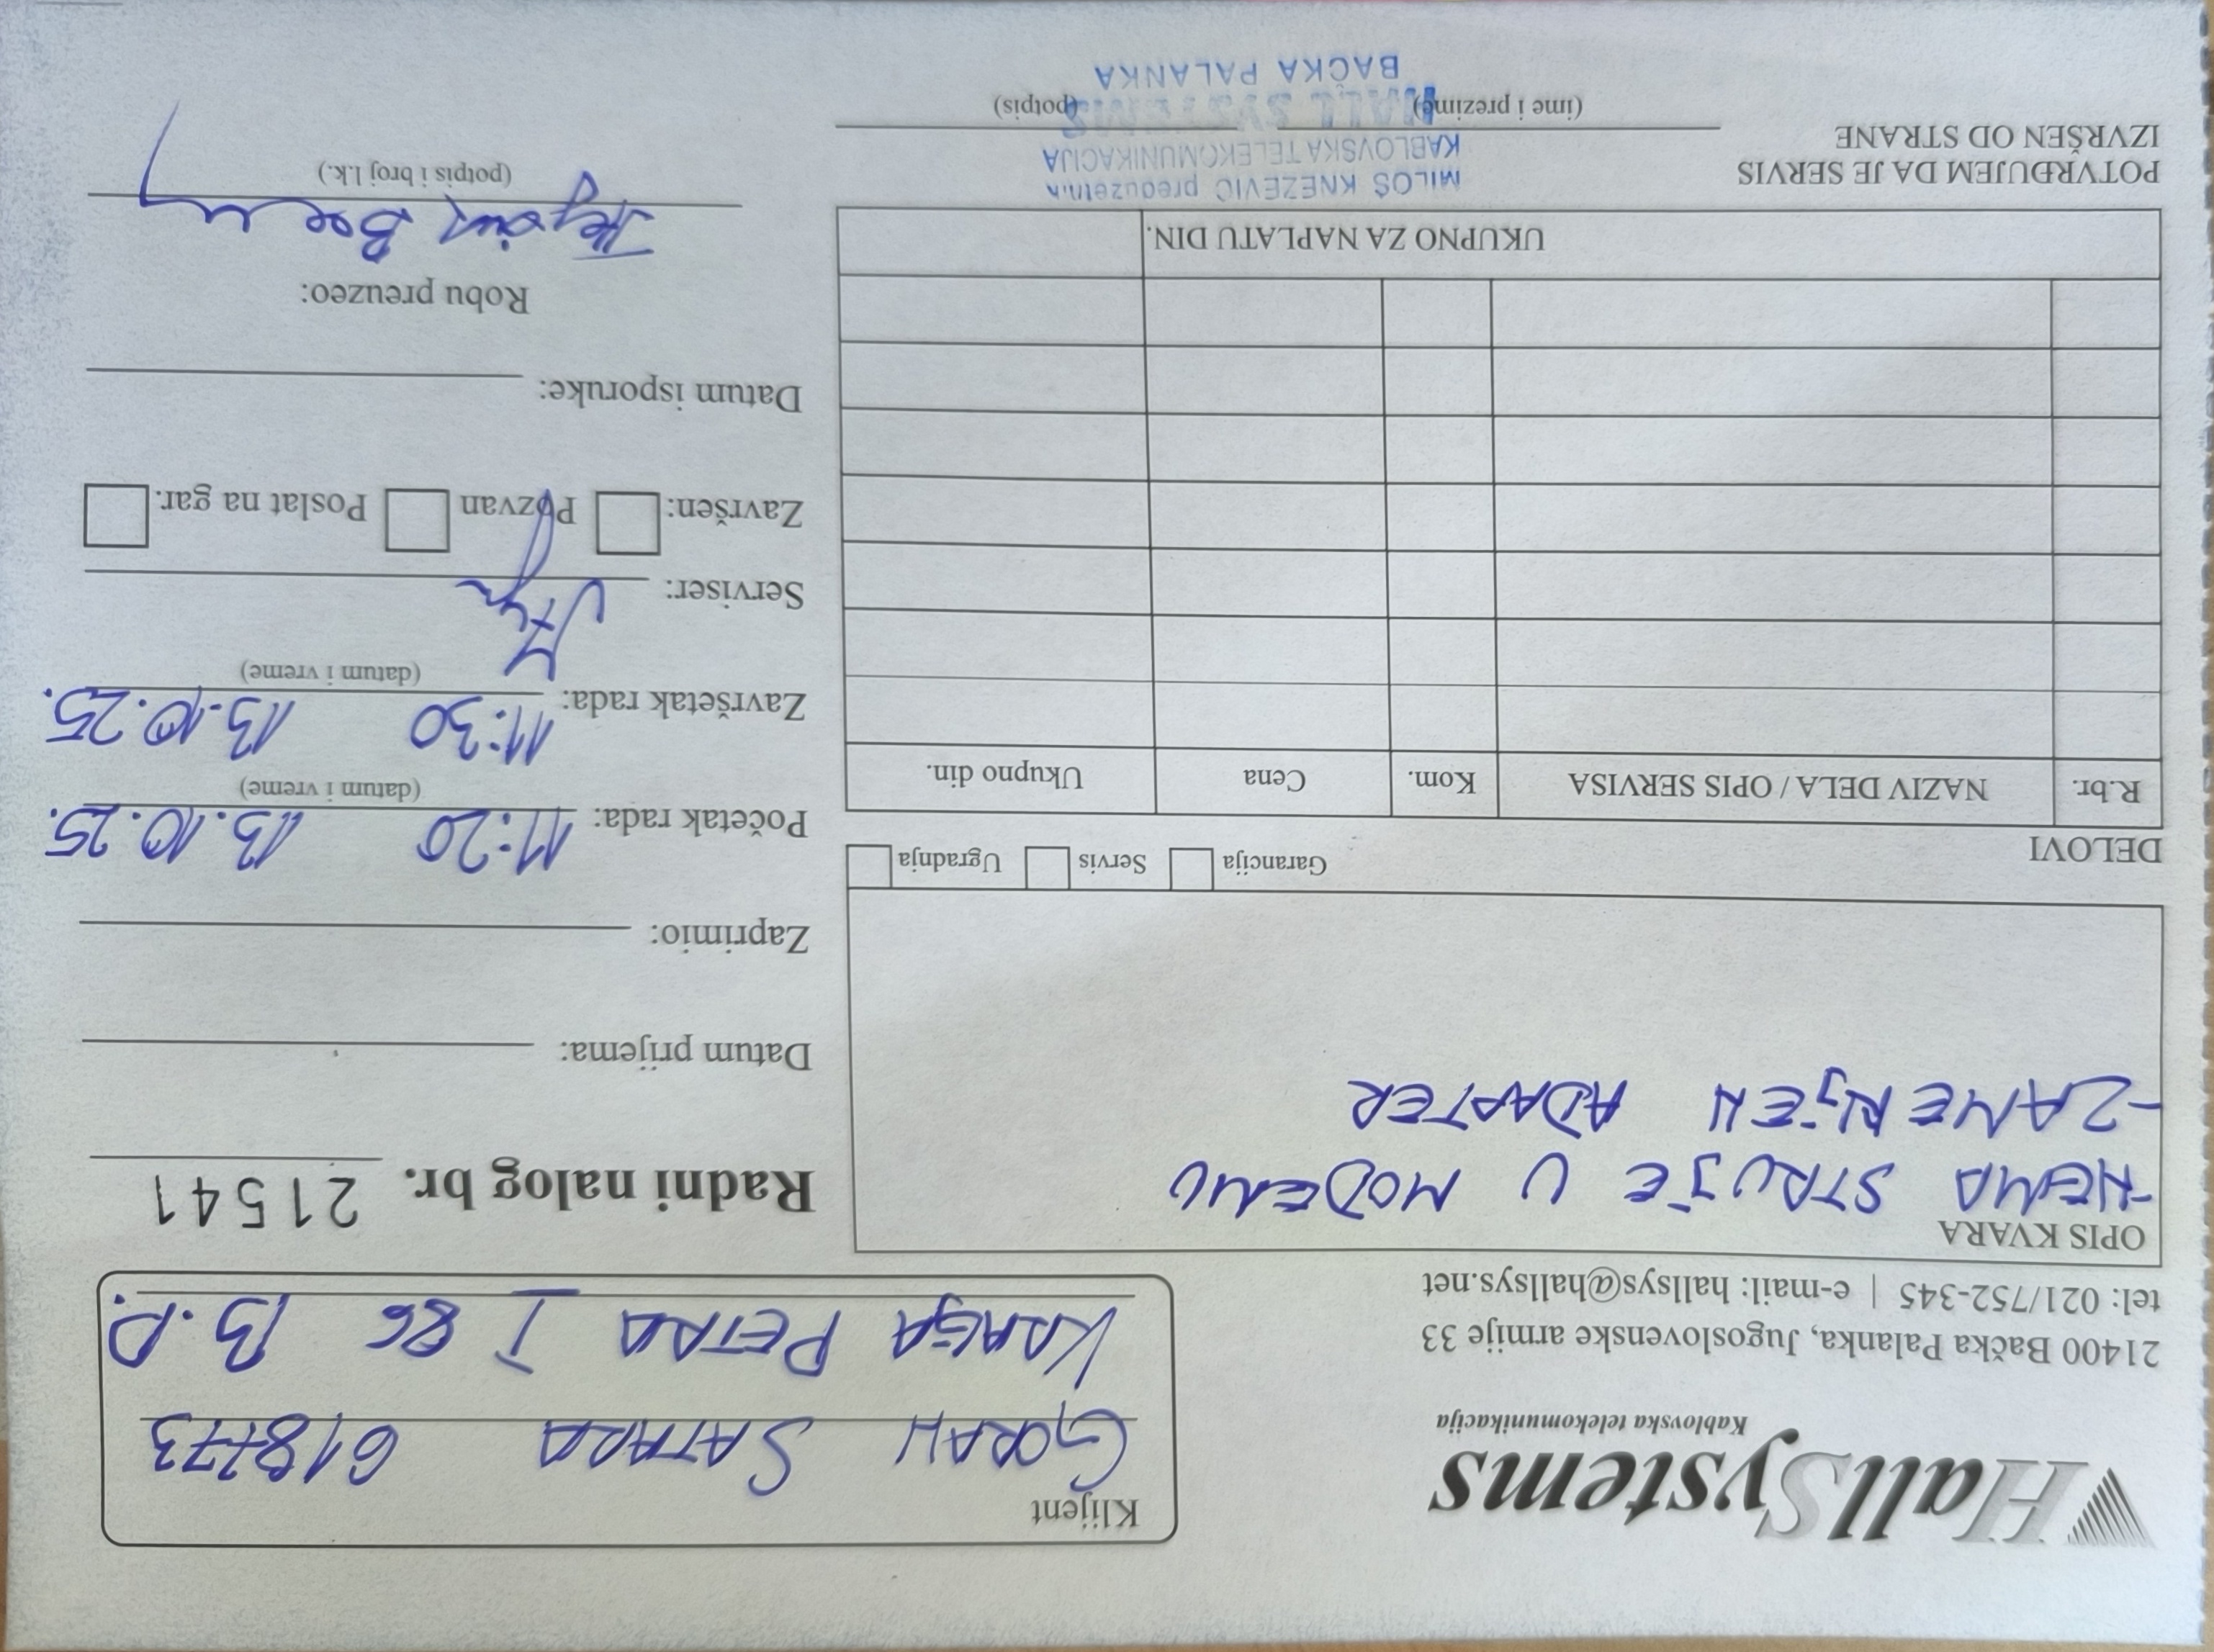 HallSystems
Kablovska telekomunikacija
21400 Bačka Palanka, Jugoslovenske armije 33
tel: 021/752-345 | e-mail: hallsys@hallsys.net
Klijent
GORAN SATARA 618773
KRALJA PETRA I 86 B.P.
OPIS KVARA
-NEMA STRUJE U MODEMU
-ZAMENJEN ADAPTER
Garancija Servis Ugradnja
DELOVI
R.br. NAZIV DELA / OPIS SERVISA Kom. Cena Ukupno din.
UKUPNO ZA NAPLATU DIN.
POTVRĐUJEM DA JE SERVIS
IZVRŠEN OD STRANE
(ime i prezime) (potpis)
MILOŠ KNEŽEVIĆ preduzetnik
KABLOVSKA TELEKOMUNIKACIJA
HALL SYSTEMS
BAČKA PALANKA
Radni nalog br. 21541
Datum prijema:
Zaprimio:
Početak rada: 11:20 13.10.25.
(datum i vreme)
Završetak rada: 11:30 13.10.25.
(datum i vreme)
Serviser:
Završen: Pozvan Poslat na gar.
Datum isporuke:
Robu preuzeo:
(potpis i broj l.k.)